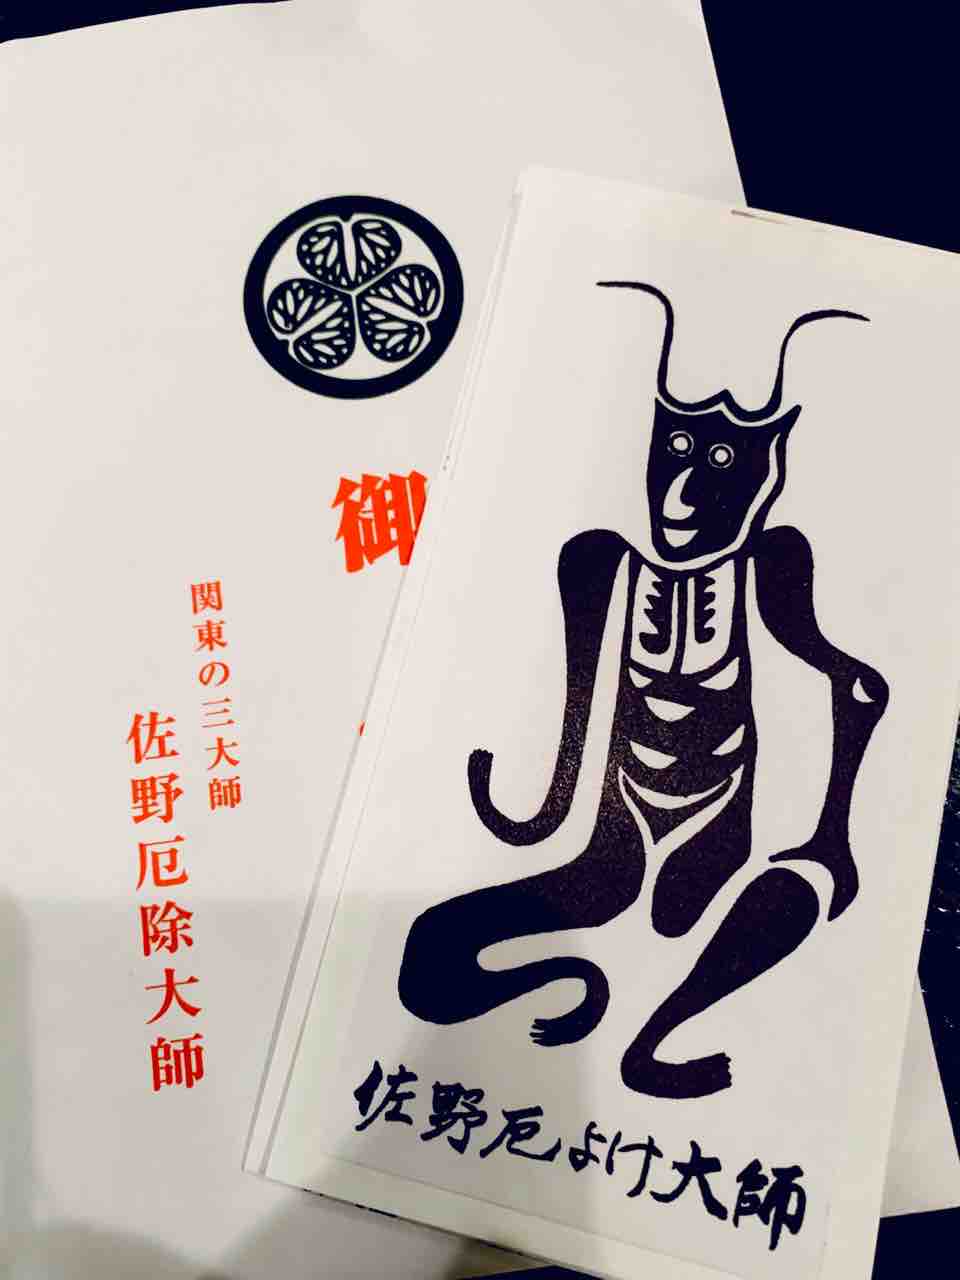 御
関東の三大師
佐野厄除大師
佐野厄よけ大師